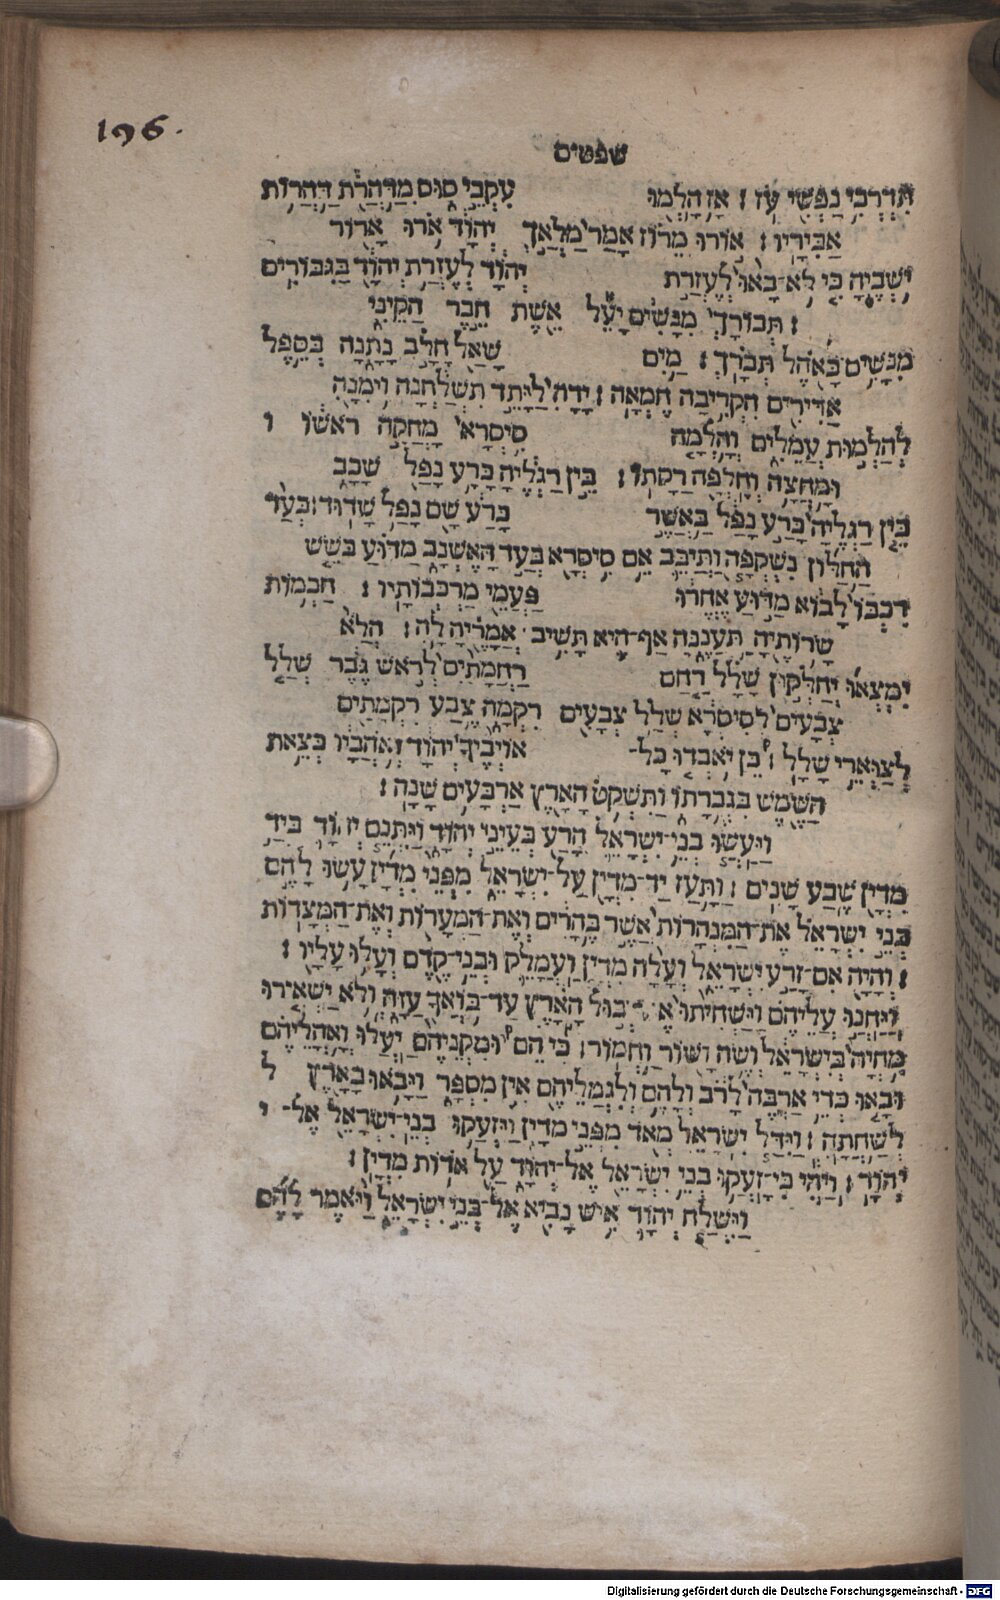 196.
שפטים
תִּדְרְכִי נַפְשִׁי עֹז׃ אָז הָלְמוּ עִקְּבֵי סוּס מִדַּהֲרֹת דַּהֲרוֹת
אַבִּירָיו׃ אוֹרוּ מֵרוֹז אָמַר מַלְאַךְ יְהוָֹד אֹרוּ אָרוֹר
יֹשְׁבֶיהָ כִּי לֹא־בָאוּ לְעֶזְרַת יְהוָֹד לְעֶזְרַת יְהוָֹד בַּגִּבּוֹרִים
׃ תְּבוֹרַךְ מִנָּשִׁים יָעֵל אֵשֶׁת חֶבֶר הַקֵּינִי
מִנָּשִׁים בָּאֹהֶל תְּבֹרָךְ׃ מַיִם שָׁאַל חָלָב נָתָנָה בְּסֵפֶל
אַדִּירִים הִקְרִיבָה חֶמְאָה׃ יָדָהּ לַיָּתֵד תִּשְׁלַחְנָה וִימִנָהּ
לְהַלְמוּת עֲמֵלִים וְהָלְמָה סִיסְרָא מָחֲקָה רֹאשׁוֹ ו
וּמָחֲצָה וְחָלְפָה רַקָּתוֹ׃ בֵּין רַגְלֶיהָ כָּרַע נָפַל שָׁכָב
בֵּין רַגְלֶיהָ כָּרַע נָפָל בַּאֲשֶׁר כָּרַע שָׁם נָפַל שָׁדוּד׃ בְּעַד
הַחַלּוֹן נִשְׁקְפָה וַתְּיַבֵּב אֵם סִיסְרָא בְּעַד הָאֶשְׁנָב מַדּוּעַ בֹּשֵׁשׁ
רִכְבּוֹ לָבוֹא מַדּוּעַ אֶחֱרוּ פַּעֲמֵי מַרְכְּבוֹתָיו׃ חַכְמוֹת
שָׂרוֹתֶיהָ תַּעֲנֶנָּה אַף־הִיא תָּשִׁיב אֲמָרֶיהָ לָהּ׃ הֲלֹא
יִמְצְאוּ יְחַלְּקוּ שָׁלָל רַחַם רַחֲמָתַיִם לְרֹאשׁ גֶּבֶר שְׁלַל
צְבָעִים לְסִיסְרָא שְׁלַל צְבָעִים רִקְמָה צֶבַע רִקְמָתַיִם
לְצַוְּארֵי שָׁלָל׃ כֵּן יֹאבְדוּ כָל־ אוֹיְבֶיךָ יְהוָֹד וְאֹהֲבָיו כְּצֵאת
הַשֶּׁמֶשׁ בִּגְבֻרָתוֹ וַתִּשְׁקֹט הָאָרֶץ אַרְבָּעִים שָׁנָה׃
וַיַּעֲשׂוּ בְנֵי־יִשְׂרָאֵל הָרַע בְּעֵינֵי יְהוָֹד וַיִּתְּנֵם יְהוָֹד בְּיַד
מִדְיָן שֶׁבַע שָׁנִים׃ וַתָּעָז יַד־מִדְיָן עַל־יִשְׂרָאֵל מִפְּנֵי מִדְיָן עָשׂוּ לָהֶם
בְּנֵי יִשְׂרָאֵל אֶת־הַמִּנְהָרוֹת אֲשֶׁר בֶּהָרִים וְאֶת־הַמְּעָרוֹת וְאֶת־הַמְּצָדוֹת
׃ וְהָיָה אִם־זָרַע יִשְׂרָאֵל וְעָלָה מִדְיָן וַעֲמָלֵק וּבְנֵי־קֶדֶם וְעָלוּ עָלָיו׃
וַיַּחֲנוּ עֲלֵיהֶם וַיַּשְׁחִיתוּ יְבוּל הָאָרֶץ עַד־בּוֹאֲךָ עַזָּה וְלֹא יַשְׁאִירוּ
מִחְיָה בְּיִשְׂרָאֵל וְשֶׂה וָשׁוֹר וַחֲמוֹר׃ כִּי הֵם וּמִקְנֵיהֶם יַעֲלוּ וְאָהֳלֵיהֶם
וּבָאוּ כְדֵי אַרְבֶּה לָרֹב וְלָהֶם וְלִגְמַלֵּיהֶם אֵין מִסְפָּר וַיָּבֹאוּ בָאָרֶץ ל
לְשַׁחֲתָהּ׃ וַיִּדַּל יִשְׂרָאֵל מְאֹד מִפְּנֵי מִדְיָן וַיִּזְעֲקוּ בְנֵי־יִשְׂרָאֵל אֶל־ י
יְהוָֹד׃ וַיְהִי כִּי־זָעֲקוּ בְנֵי יִשְׂרָאֵל אֶל־יְהוָֹד עַל אֹדוֹת מִדְיָן׃
וַיִּשְׁלַח יְהוָֹד אִישׁ נָבִיא אֶל־בְּנֵי יִשְׂרָאֵל וַיֹּאמֶר לָהֶם
Digitalisierung gefördert durch die Deutsche Forschungsgemeinschaft - DFG